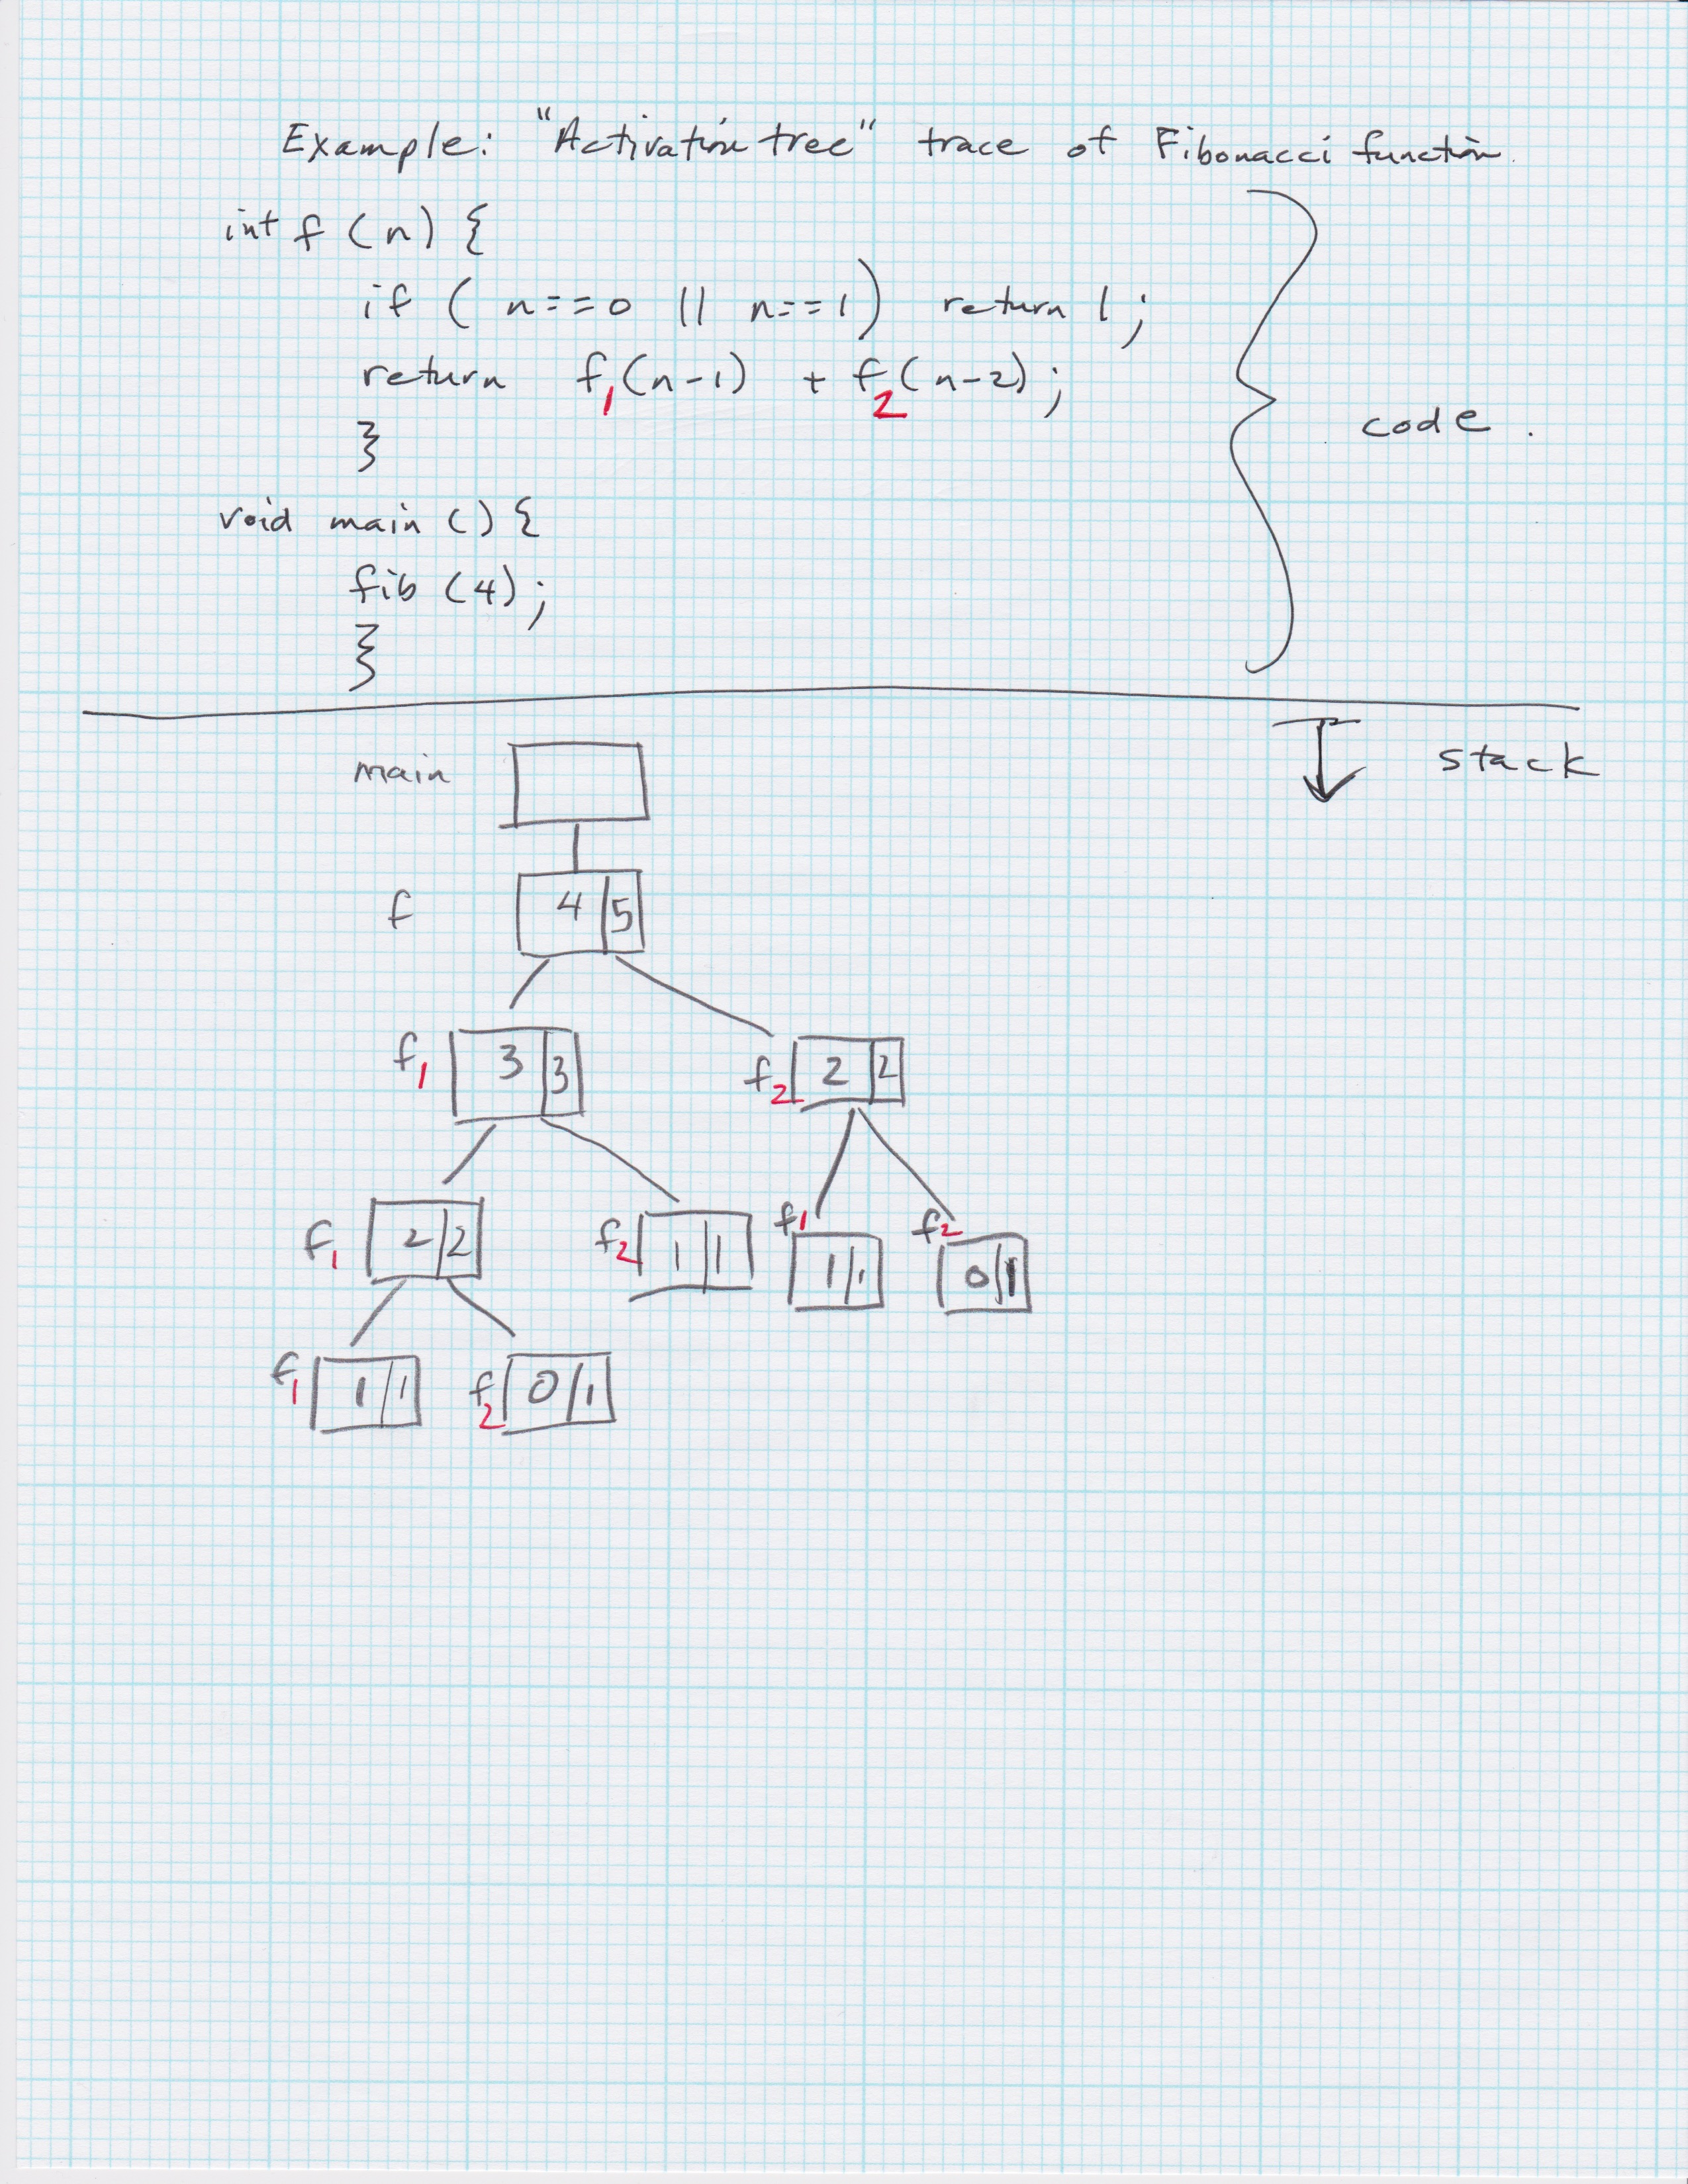 Example: "Activation tree" trace of Fibonacci function.
int f (n) {
if ( n==0 || n==1) return 1;
return f1(n-1) + f2(n-2);
}
code.
void main () {
fib (4);
}
stack
main
f 4 5
f1 3 3 f2 2 2
f1 2 2 f2 1 1 f1 1 1 f2 0 1
f1 1 1 f2 0 1